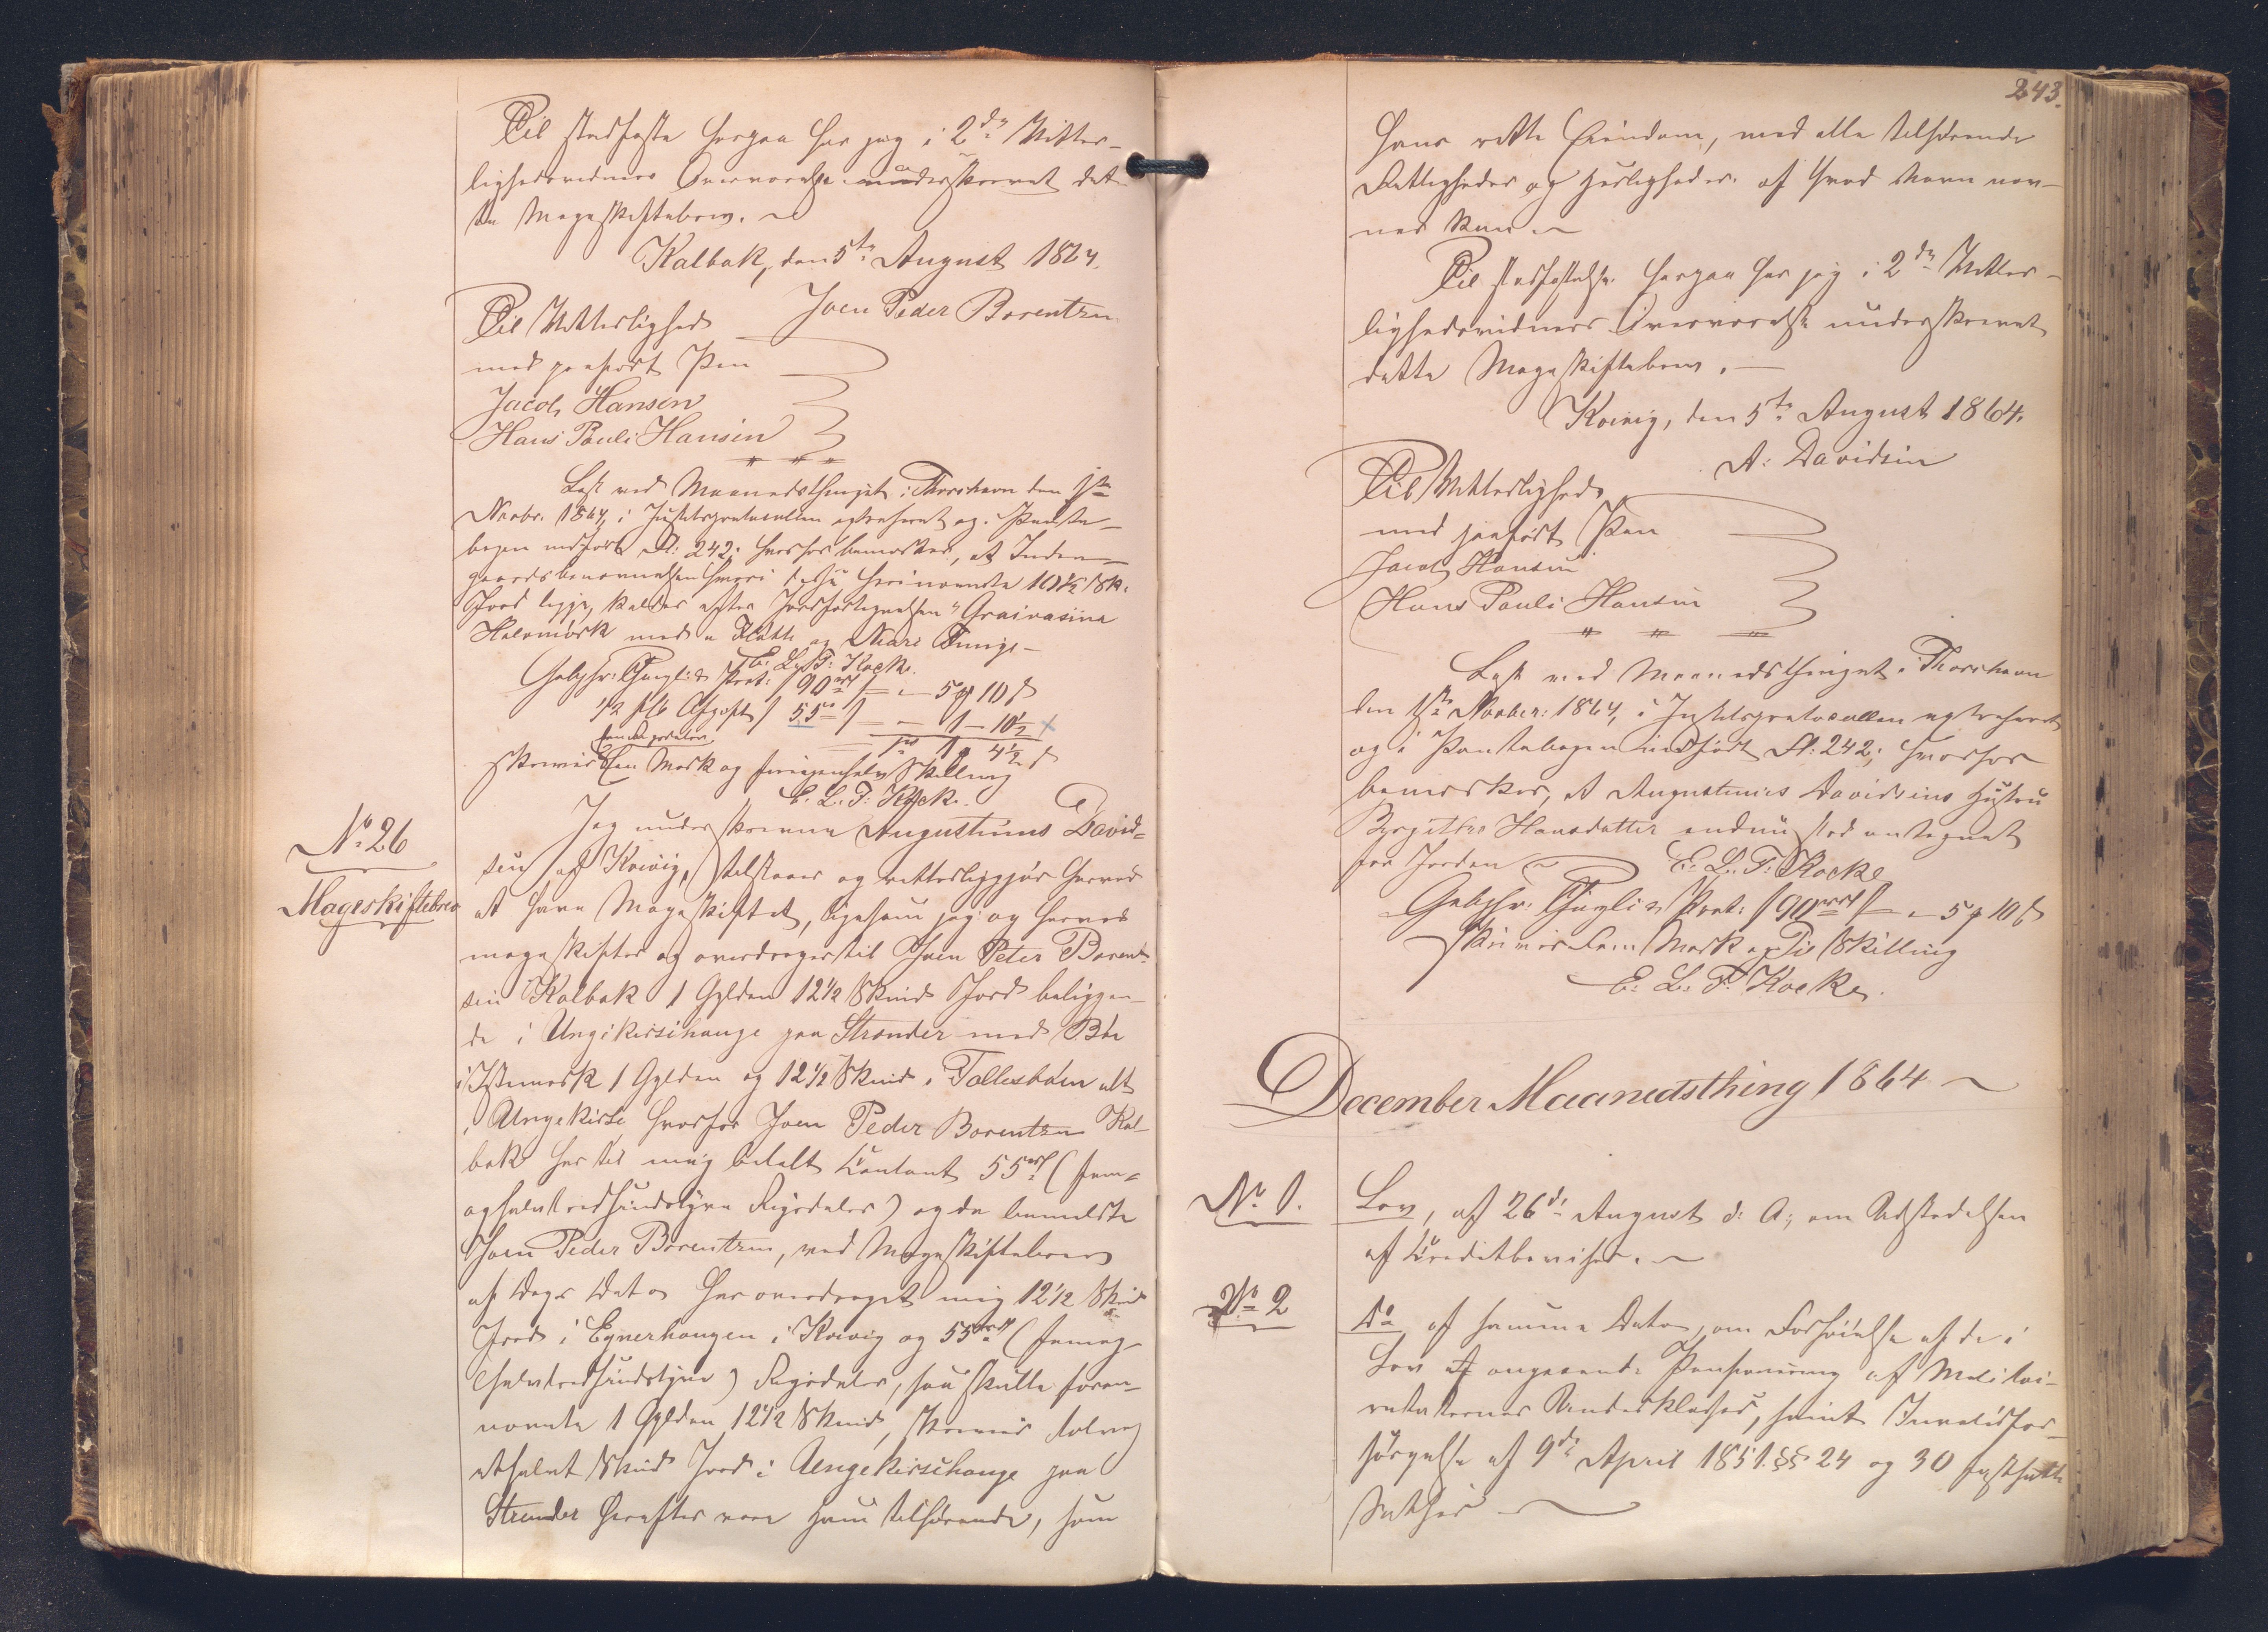 Til Stadfæste herpaa har jeg i 2de Vitter-
lighedsvidners Overværelse underskrevet det-
te Mageskiftebrev.
Kalbak, den 5te August 1864.
Joen Peder Borentzen
Til Vitterlighed
med paaført Pen
Jacob Hansen
Hans Pauli Hansen
Læst ved Maanedsthinget i Thorshavn den 1ste
Novbr. 1864, i Justitsprotocollen extraheret og i Pante-
bogen indført Fol: 242; hvorhos bemærkes, at Inden-
gaardsbenævnelsen hvori disse heri nævnte 10½ Sk:
Jord ligge, kaldes efter Jordfortegnelsen "Graivasina
Halvmörk med
E. L. T: Kock.
Gebyhr: Thinglæs. Prot: / 90 rd / — 5 ƒ 10 ß
½ pCt Afgift / 55 rd / — 1 — 10½ ×
1 rd 1 ƒ 4½ ß
en Rigsdaler
skriver Een Mark og Skilling
E. L. T: Kock.
No 26
Mageskiftebrev
Jeg underskrevne Augustinus David-
sen af Kvivig, tilstaaer og vitterliggjør herved
at have Mageskiftet, ligesom jeg og herved
mageskifter og overdrager til Joen Peter Borent-
sen Kalbak 1 Gylden 12½ Skind Jord beliggen-
de i Ungikirsihauge paa Strænder med Böe
i Istemørk 1 Gylden og 12½ Skind i Tollesböen alt
i Ungekirse hvorfor Joen Peder Borentzen Kal-
bak har til mig betalt Contant 55 rd (fem-
oghalvtredsindstyve Rigsdaler) og da bemeldte
Joen Peder Borentzen, ved Mageskiftebrev
af Dags Dato har overdraget mig 12½ Skind
Jord i Eynerhaugen i Kvivig og 55 rd (femog-
halvtredsindstyve) Rigsdaler, saa skulle foran-
nævnte 1 Gylden 12½ Skind, skriver tolv og
et halvt Skind Jord i Ungekirsehauge paa
Strender herefter være ham tilhørende, som
243.
hans rette Eiendom, med alle tilhørende
Rettigheder og Herligheder af hvad Navn næv-
nes kan.
Til Stadfæstelse herpaa har jeg i 2de Vitter-
lighedsvidners Overværelse underskrevet
dette Mageskiftebrev.
Kvivig, den 5te August 1864.
A: Davidsen
Til Vitterlighed
med paaført Pen
Jacob Hansen
Hans Pauli Hansen
Læst ved Maanedsthinget i Thorshavn
den 1ste Novber: 1864, i Justitsprotocollen extraheret
og i Pantebogen indført Fol: 242; hvorhos
bemærkes, at Augustinus Davidsens Hustru
Birgithe Hansdatter endnu staar antegnet
for Jorden
E. L. T: Kock
Gebyhr. Thinglæs. Prot: / 90 rd / — 5 ƒ 10 ß
skriver Fem Mark og Ti Skilling
E. L. T. Kock.
December Maanedsthing 1864
No 1.
Lov, af 26de August d: A:, om Udstedelsen
af Creditbeviser.
No 2
Do af samme Dato, om Forhøielse af de i
Lov af angaaende Pensionering af Militai-
retaternes Underklasser, samt Invalidfor-
sörgelse af 9de April 1851 §§ 24 og 30 fastsatte
Satser